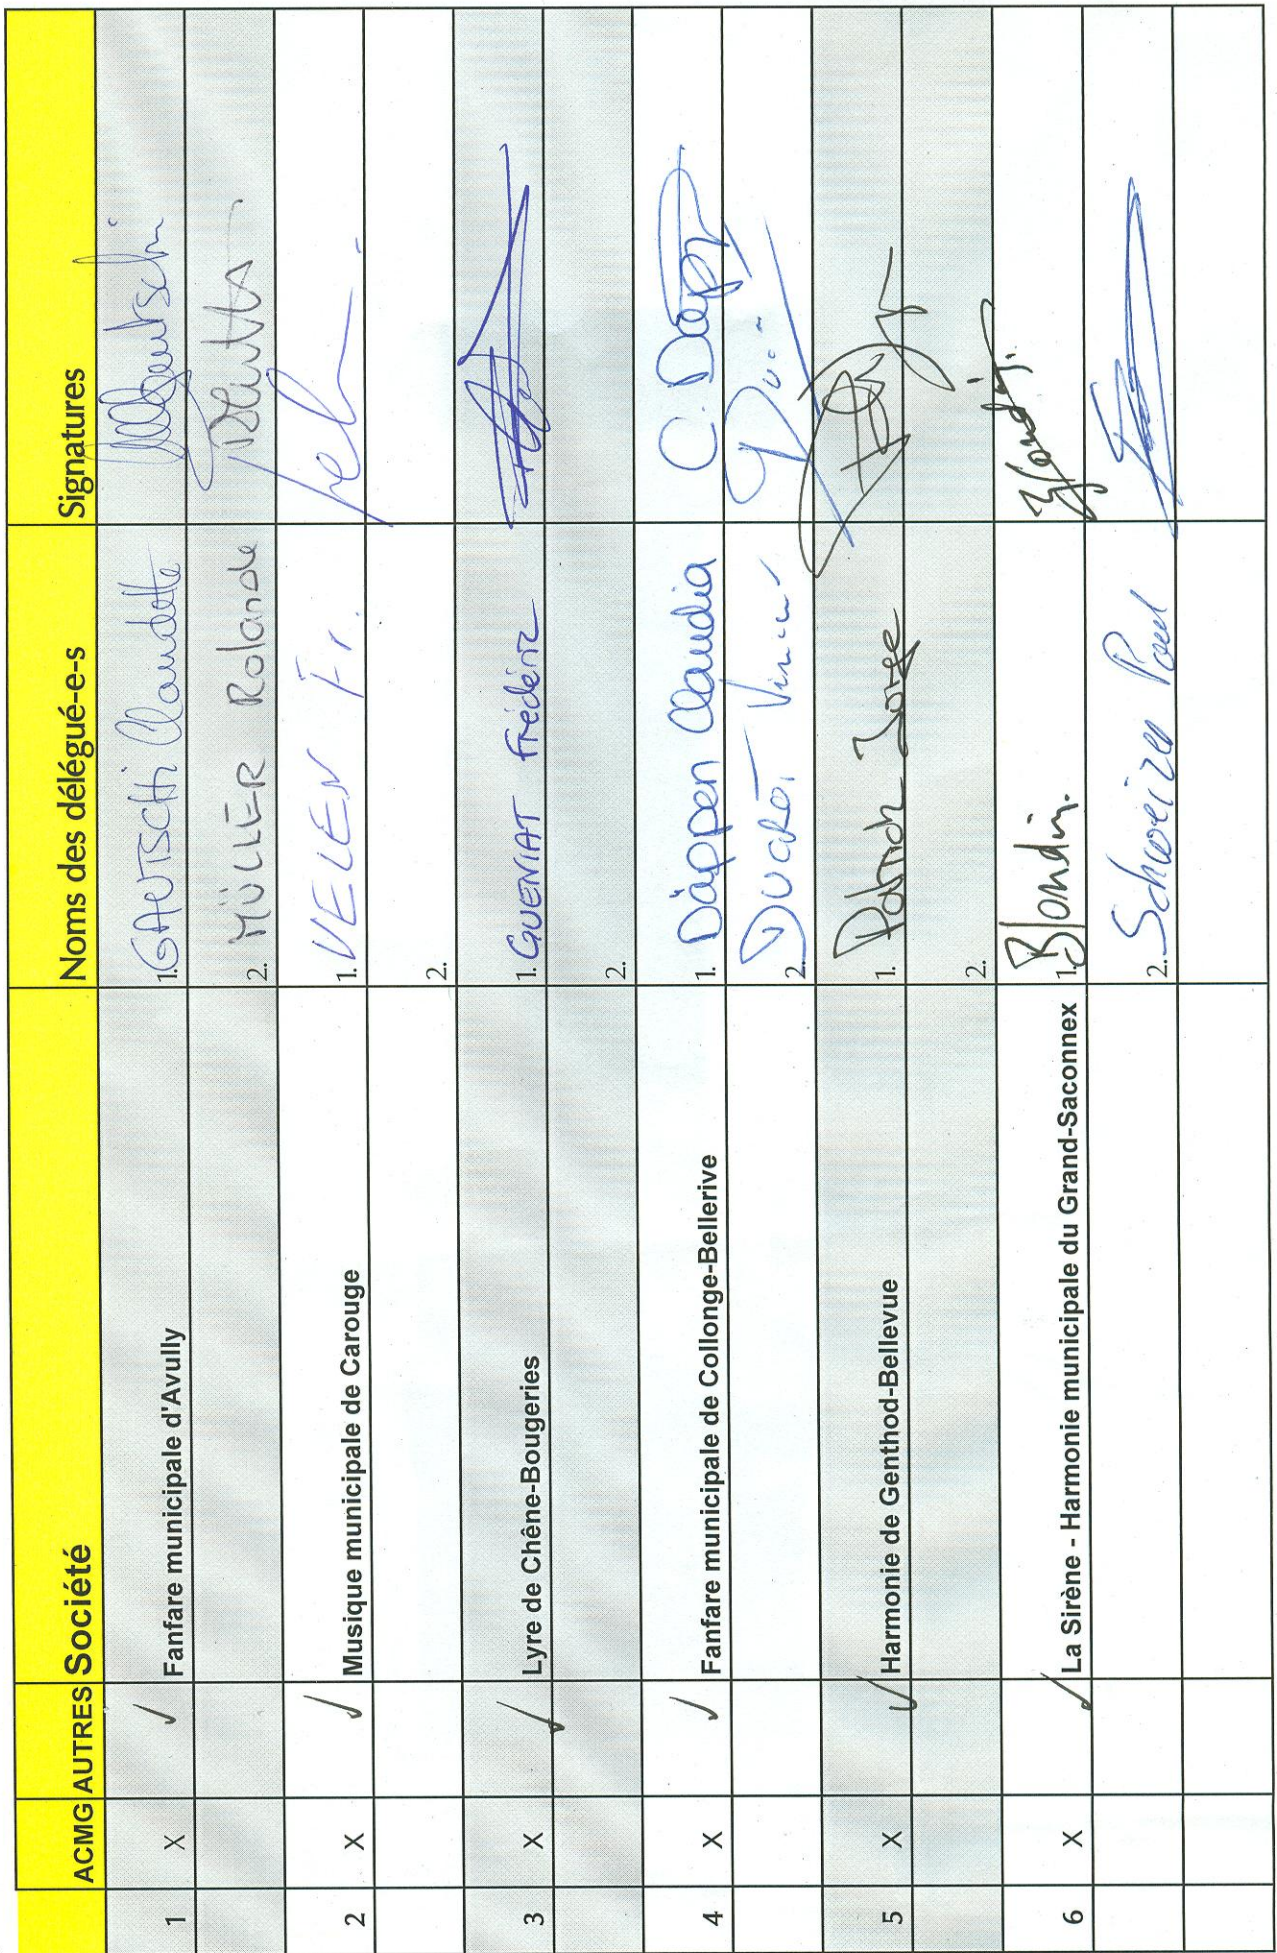 ACMG AUTRES Société Noms des délégué-e-s Signatures
1 X ✓ Fanfare municipale d'Avully 1. GAUTSCHI Claudette
2. MÜLLER Rolande
2 X ✓ Musique municipale de Carouge 1. VELEN Fr.
2.
3 X ✓ Lyre de Chêne-Bougeries 1. GUENIAT Frédéric
2.
4 X ✓ Fanfare municipale de Collonge-Bellerive 1. Däppen Claudia C. Däpp
2. DUCROT
5 X ✓ Harmonie de Genthod-Bellevue 1.
2.
6 X ✓ La Sirène - Harmonie municipale du Grand-Saconnex 1. Blondin.
2. Schweizer Paul